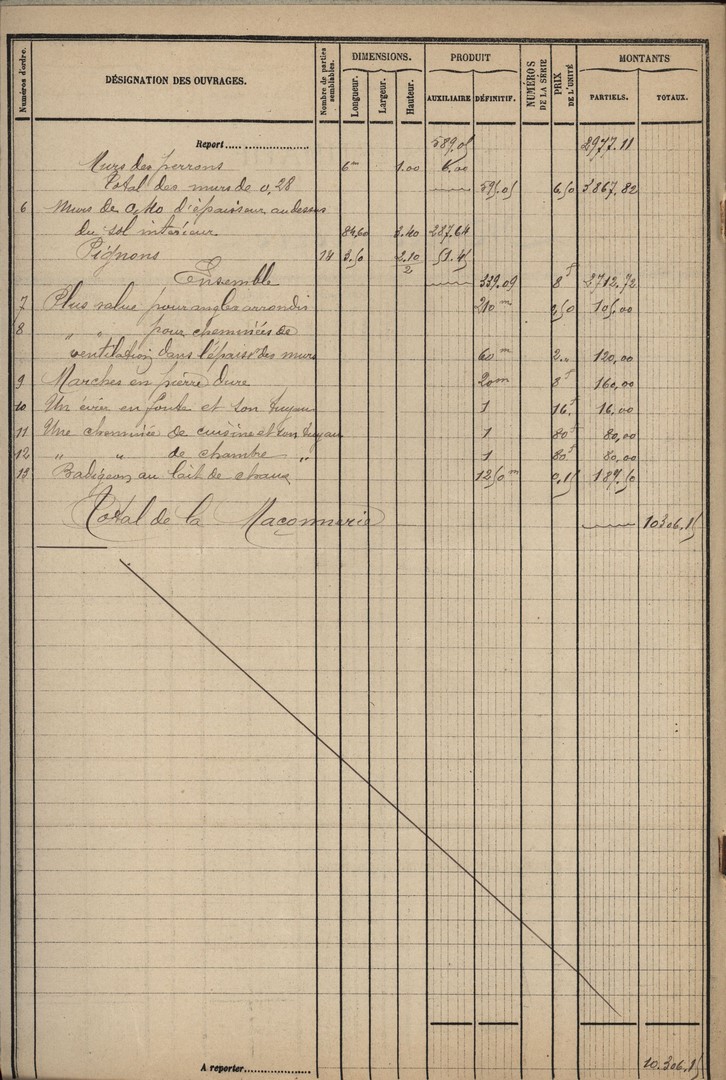 Numéros d'ordre. DÉSIGNATION DES OUVRAGES. Nombre de parties semblables. DIMENSIONS. Longueur. Largeur. Hauteur. PRODUIT AUXILIAIRE DÉFINITIF. NUMÉROS DE LA SÉRIE PRIX DE L'UNITÉ MONTANTS PARTIELS. TOTAUX.
Report..... 589.05 2977.11
Murs des perrons 6m 1.00 6.00
Total des murs de 0,28 595.05 6.50 3867,82
6 Murs de 0,40 d'épaisseur au dessus
du sol interieur 84,60 3.40 287.64
Pignons 14 3.50 2.10/2 51.45
Ensemble 339.09 8f 2712.72
7 Plus value pour angles arrondis 210m 0,50 105.00
8 " " pour cheminées de
ventilation dans l'épaisr des murs 60m 2.. 120,00
9 Marches en pierre dure 20m 8f 160,00
10 Un évier en fonte et son tuyau 1 16f 16,00
11 Une cheminée de cuisine et son tuyau 1 80f 80,00
12 " " de chambre " 1 80f 80,00
13 Badigeon au lait de chaux 1250m 0,15 187.50
Total de la Maçonnerie 10306.15
A reporter..... 10.306.15